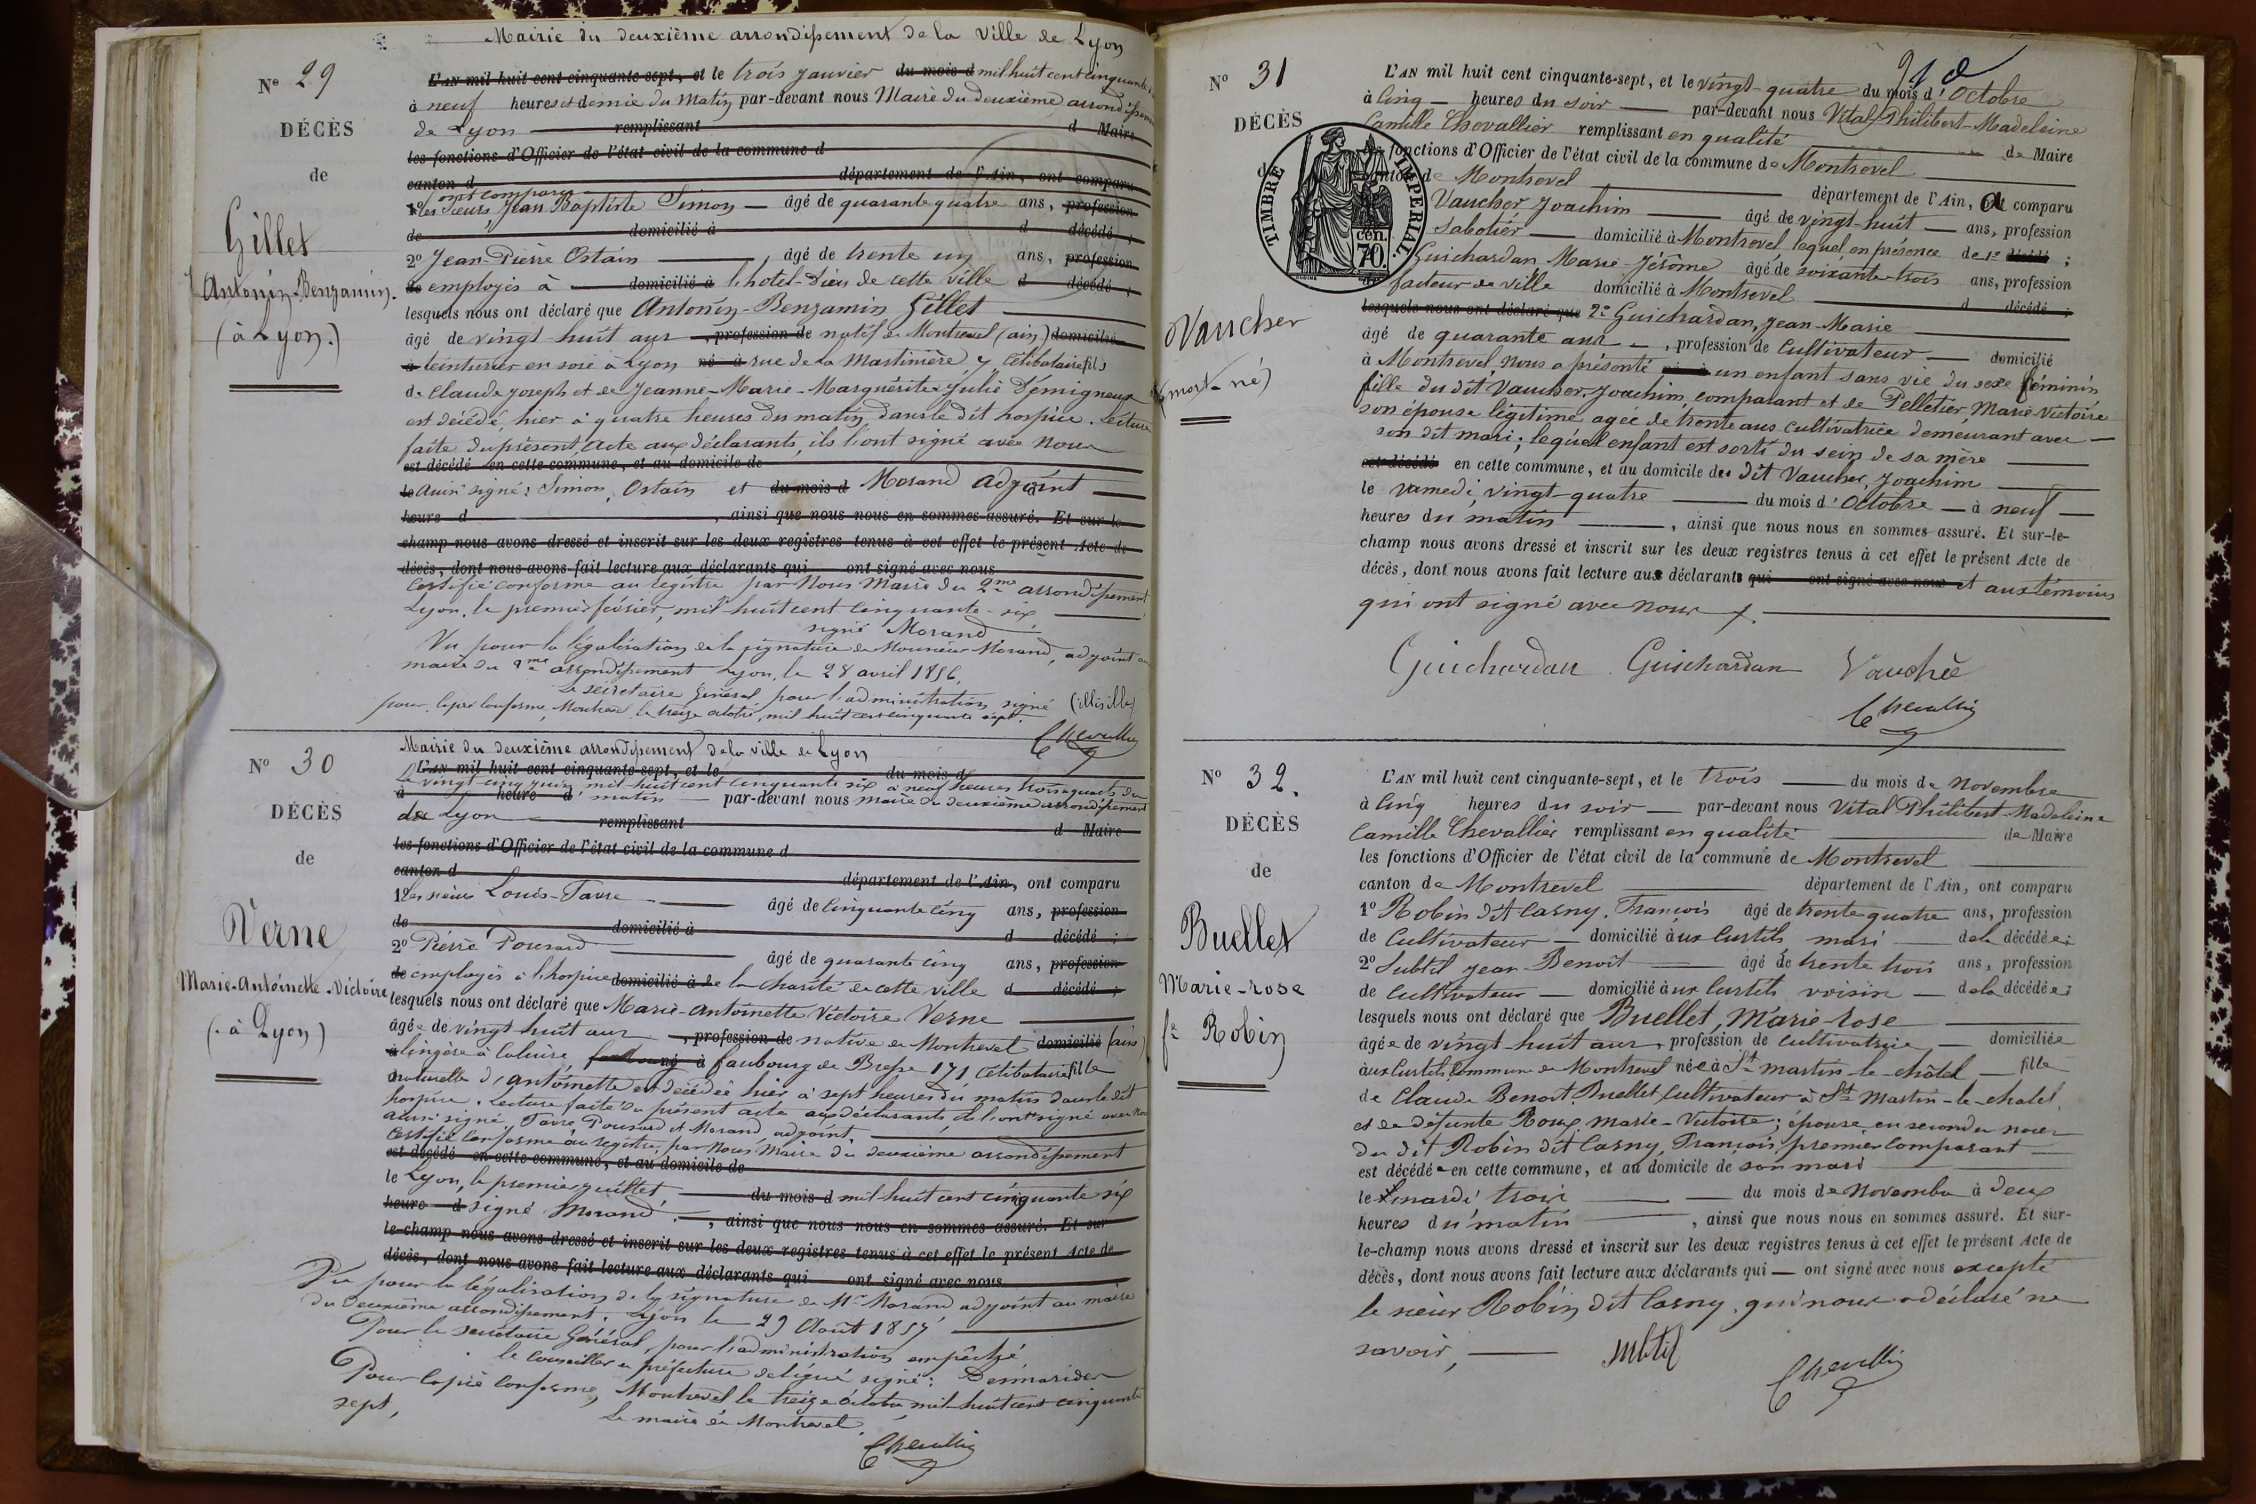 Mairie du deuxième arrondissement de la Ville de Lyon
N° 29
DÉCÈS
de
Gillet
Antonin-Benjamin.
(à Lyon.)
L'AN mil huit cent cinquante-sept, et le trois Janvier du mois d mil huit cent cinquante
à neuf heures et demie du matin, par-devant nous Maire du deuxième arrondissement
de Lyon remplissant d Maire
les fonctions d'Officier de l'état civil de la commune d
canton d département de l'Ain, ont comparu
ont comparu
1° les sieurs, Jean Baptiste Simon âgé de quarante quatre ans, profession
de domicilié à d décédé ;
2° Jean-Pierre Ostain, âgé de trente un ans, profession
de employés à domicilié à l'hotel-Dieu de cette ville d décédé ;
lesquels nous ont déclaré que Antonin-Benjamin Gillet
âgé de vingt huit ans, profession de natif de Montrevel (ain) domicilié
à teinturier en soie à Lyon né à rue de la Martinière 7 Célibataire fils
de Claude Joseph et de Jeanne-Marie-Marguerite Julie Démigneux
est décédé, hier à quatre heures du matin, dans le dit hospice. Lecture
faite du présent acte aux déclarants, ils l'ont signé avec nous
est décédé en cette commune, et au domicile de
le ainsi signé : Simon, Ostain et du mois d Morand adjoint
heure d , ainsi que nous nous en sommes assuré. Et sur le
champ nous avons dressé et inscrit sur les deux registres tenus à cet effet le présent Acte de
décès, dont nous avons fait lecture aux déclarants qui ont signé avec nous
Certifié conforme au registre par Nous Maire du 2me arrondissement
Lyon, le premier février, mil huit cent cinquante-six
signé Morand
Vu pour la légalisation de la signature de Monsieur Morand, adjoint au
maire du 2me arrondissement Lyon, le 28 avril 1856.
Le secrétaire Général pour l'administration, signé (illisible)
pour copie conforme, Montrevel le treize octobre, mil huit cent cinquante sept.
Chevallier
N° 30
DÉCÈS
de
Verne
Marie-Antoinette-Victoire
(à Lyon)
Mairie du deuxième arrondissement de la ville de Lyon
L'AN mil huit cent cinquante-sept, et le du mois d
Le vingt cinq juin mil huit cent cinquante six à neuf heures trois quarts du
à heure d matin par-devant nous maire du deuxième arrondissement
de Lyon remplissant d Maire
les fonctions d'Officier de l'état civil de la commune d
canton d département de l'Ain, ont comparu
1° les sieurs Louis-Favre âgé de cinquante cinq ans, profession
de domicilié à d décédé ;
2° Pierre Poursard âgé de quarante cinq ans, profession
de employés à l'hospice domicilié à de la charité de cette ville d décédé ;
lesquels nous ont déclaré que Marie-Antoinette Victoire Verne
âgée de vingt huit ans, profession de native de Montrevel domicilié (ain)
à lingère à Caluire, né à faubourg de Bresse 171 Célibataire fille
naturelle d'Antoinette est décédée hier à sept heures du matin dans le dit
hospice. Lecture faite du présent acte aux déclarants, ils l'ont signé avec nous
ainsi signé, Favre Poursard et Morand adjoint.
Certifié conforme au registre, par Nous, Maire du deuxième arrondissement
est décédé en cette commune, et au domicile de
le Lyon, le premier juillet du mois d mil huit cent cinquante six
heure d signé Morand. , ainsi que nous nous en sommes assuré. Et sur
le-champ nous avons dressé et inscrit sur les deux registres tenus à cet effet le présent Acte de
décès, dont nous avons fait lecture aux déclarants qui ont signé avec nous
Vu pour la légalisation de la signature de Mr Morand adjoint au maire
du deuxième arrondissement. Lyon le 29 Août 1857
Pour le secrétaire Général, pour l'administration empêché
le Conseiller de préfecture délégué signé :
Pour copie conforme, Montrevel le treize octobre mil huit cent cinquante
sept,
Le maire de Montrevel.
Chevallier
N° 31
DÉCÈS
d
Vaucher
(mort-né)
TIMBRE IMPERIAL
70 cen.
L'AN mil huit cent cinquante-sept, et le vingt-quatre du mois d'Octobre
à Cinq heures du soir par-devant nous Vital Philibert-Madeleine
Camille Chevallier remplissant en qualité de Maire
les fonctions d'Officier de l'état civil de la commune de Montrevel
canton de Montrevel département de l'Ain, a comparu
Vaucher Joachim âgé de vingt-huit ans, profession
Sabotier domicilié à Montrevel lequel, en présence de 1° décédé ;
Guichardan Marie-Jérôme âgé de soixante-trois ans, profession
de facteur de ville domicilié à Montrevel d décédé ;
lesquels nous ont déclaré que 2° Guichardan, Jean-Marie
âgé de quarante ans, profession de Cultivateur domicilié
à Montrevel, nous a présenté un enfant sans vie, du sexe féminin
fille du dit Vaucher, Joachim, comparant et de Pelletier, Marie-Victoire
son épouse légitime, agée de trente ans cultivatrice demeurant avec
son dit mari ; lequel enfant est sorti du sein de sa mère
est décédé en cette commune, et au domicile du dit Vaucher, Joachim
le samedi, vingt-quatre du mois d'Octobre à neuf
heures du matin, ainsi que nous nous en sommes assuré. Et sur-le-
champ nous avons dressé et inscrit sur les deux registres tenus à cet effet le présent Acte de
décès, dont nous avons fait lecture aux déclarants qui ont signé avec nous et aux témoins
qui ont signé avec nous
Guichardan Guichardan Vauché
Chevallier
N° 32.
DÉCÈS
de
Buellet
Marie-rose
fe Robin
L'AN mil huit cent cinquante-sept, et le trois du mois de novembre
à Cinq heures du soir par-devant nous Vital Philibert-Madeleine
Camille Chevallier remplissant en qualité de Maire
les fonctions d'Officier de l'état civil de la commune de Montrevel
canton de Montrevel département de l'Ain, ont comparu
1° Robin dit Casny, François âgé de trente-quatre ans, profession
de Cultivateur domicilié aux Curtils mari de la décédée ;
2° Subtil Jean-Benoît âgé de trente trois ans, profession
de Cultivateur domicilié aux Curtils voisin de la décédée ;
lesquels nous ont déclaré que Buellet, Marie-rose
âgée de vingt-huit ans, profession de cultivatrice domiciliée
aux Curtils, commune de Montrevel née à St martin-le-châtel fille
de Claude Benoit Buellet, Cultivateur à St Martin-le-chatel
et de défunte Roux, Marie-Victoire ; épouse en secondes noces
du dit Robin dit Casny, François, premier comparant
est décédée en cette commune, et au domicile de son mari
le mardi trois du mois de Novembre à deux
heures du matin, ainsi que nous nous en sommes assuré. Et sur-
le-champ nous avons dressé et inscrit sur les deux registres tenus à cet effet le présent Acte de
décès, dont nous avons fait lecture aux déclarants qui ont signé avec nous excepté
le sieur Robin, dit Casny, qui nous a déclaré ne
savoir,
subtil
Chevallier